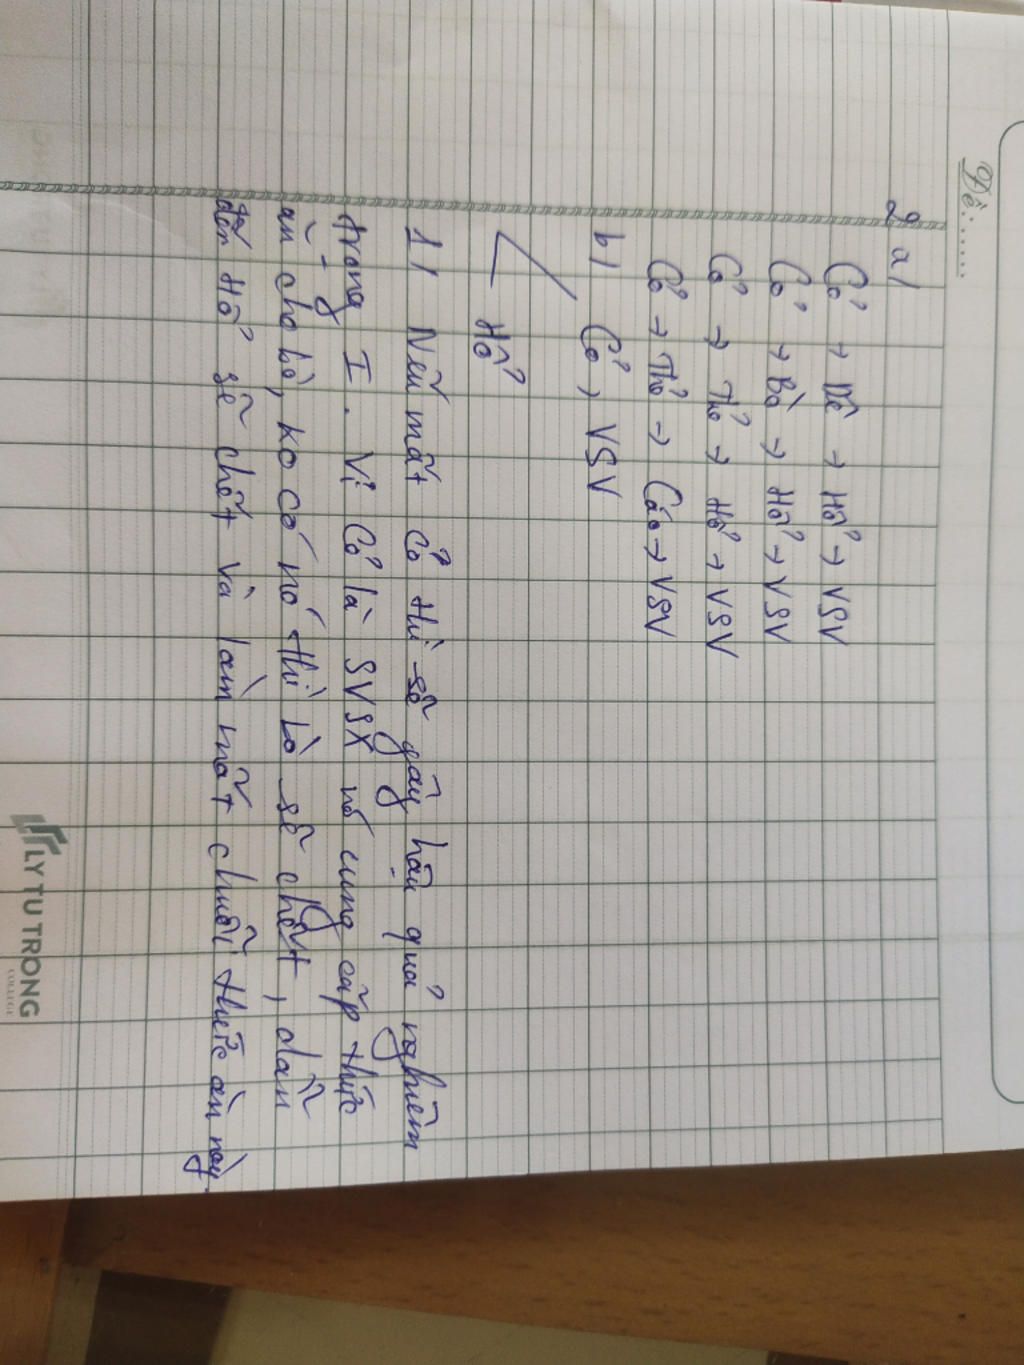 Đề:......
2 a/
Cỏ → Dê → Hổ → VSV
Cỏ → Bò → Hổ → VSV
Cỏ → Thỏ → Hổ → VSV
Cỏ → Thỏ → Cáo → VSV
b/ Cỏ, VSV
Hổ
1/ Nếu mất Cỏ thì sẽ gây hậu quả nghiêm
trọng I. Vì Cỏ là SVSX nó cung cấp thức
ăn cho bò, ko có nó thì bò sẽ chết, dẫn
đến Hổ sẽ chết và làm mất chuỗi thức ăn này.
LY TU TRONG
COLLEGE